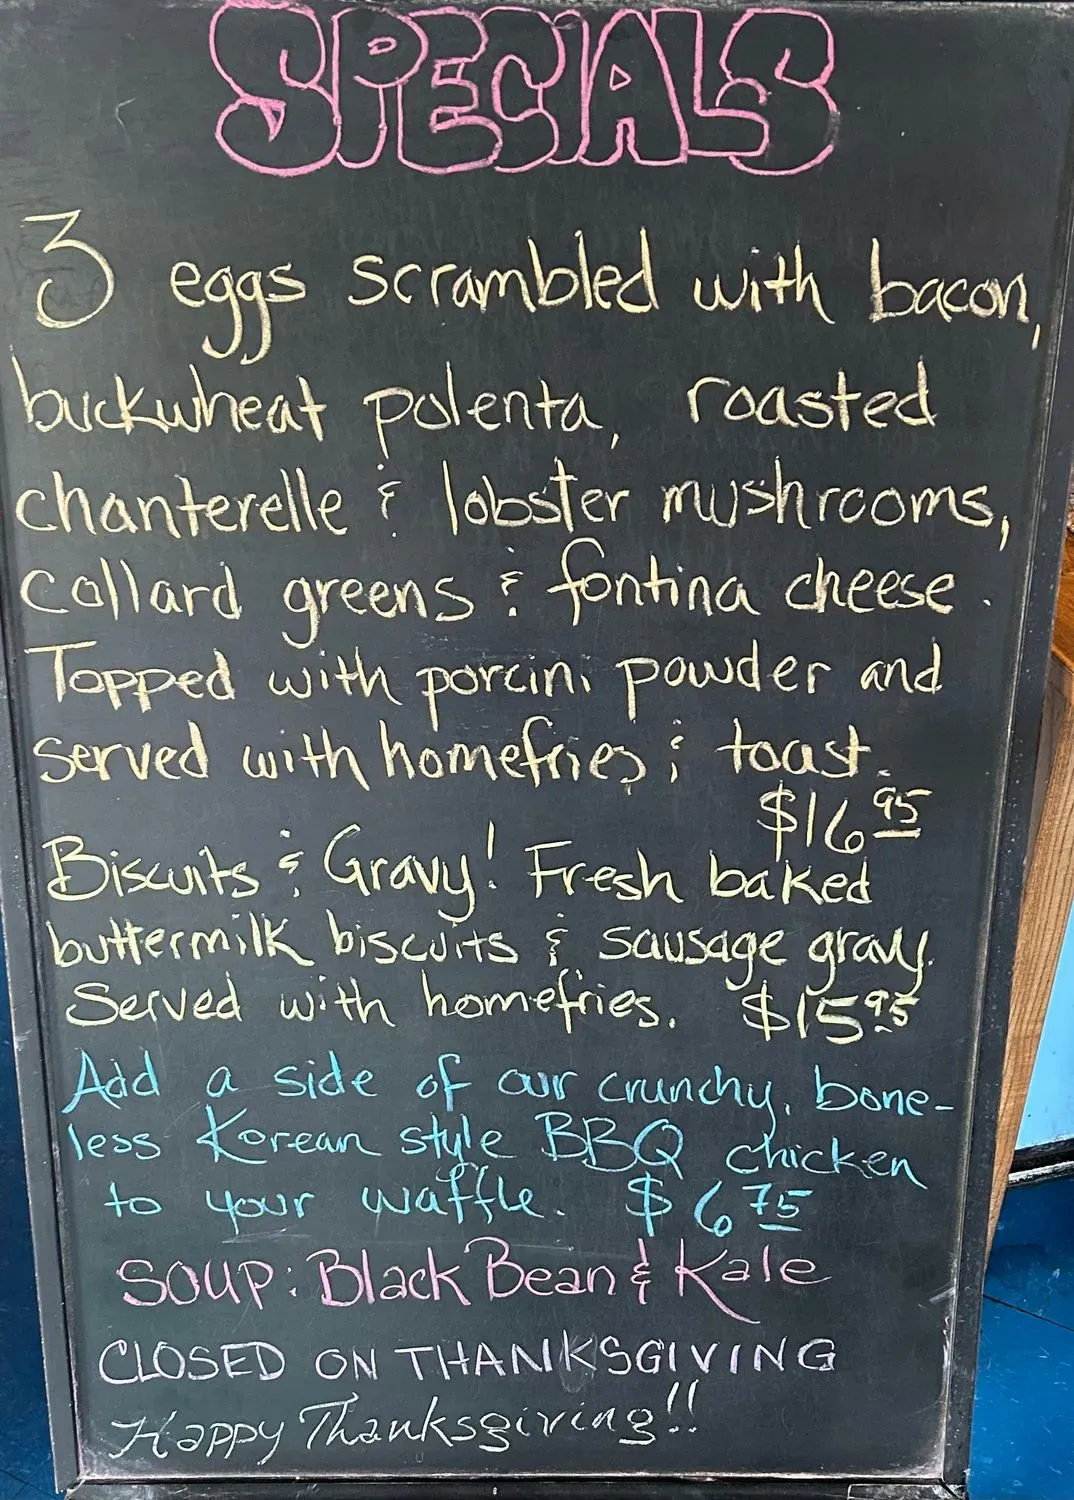 SPECIALS
3 eggs scrambled with bacon,
buckwheat polenta, roasted
chanterelle & lobster mushrooms,
collard greens & fontina cheese.
Topped with porcini powder and
served with homefries & toast.
$16.95
Biscuits & Gravy! Fresh baked
buttermilk biscuits & sausage gravy.
Served with homefries. $15.95
Add a side of our crunchy, bone-
less Korean style BBQ chicken
to your waffle. $6.75
SOUP: Black Bean & Kale
CLOSED ON THANKSGIVING
Happy Thanksgiving!!